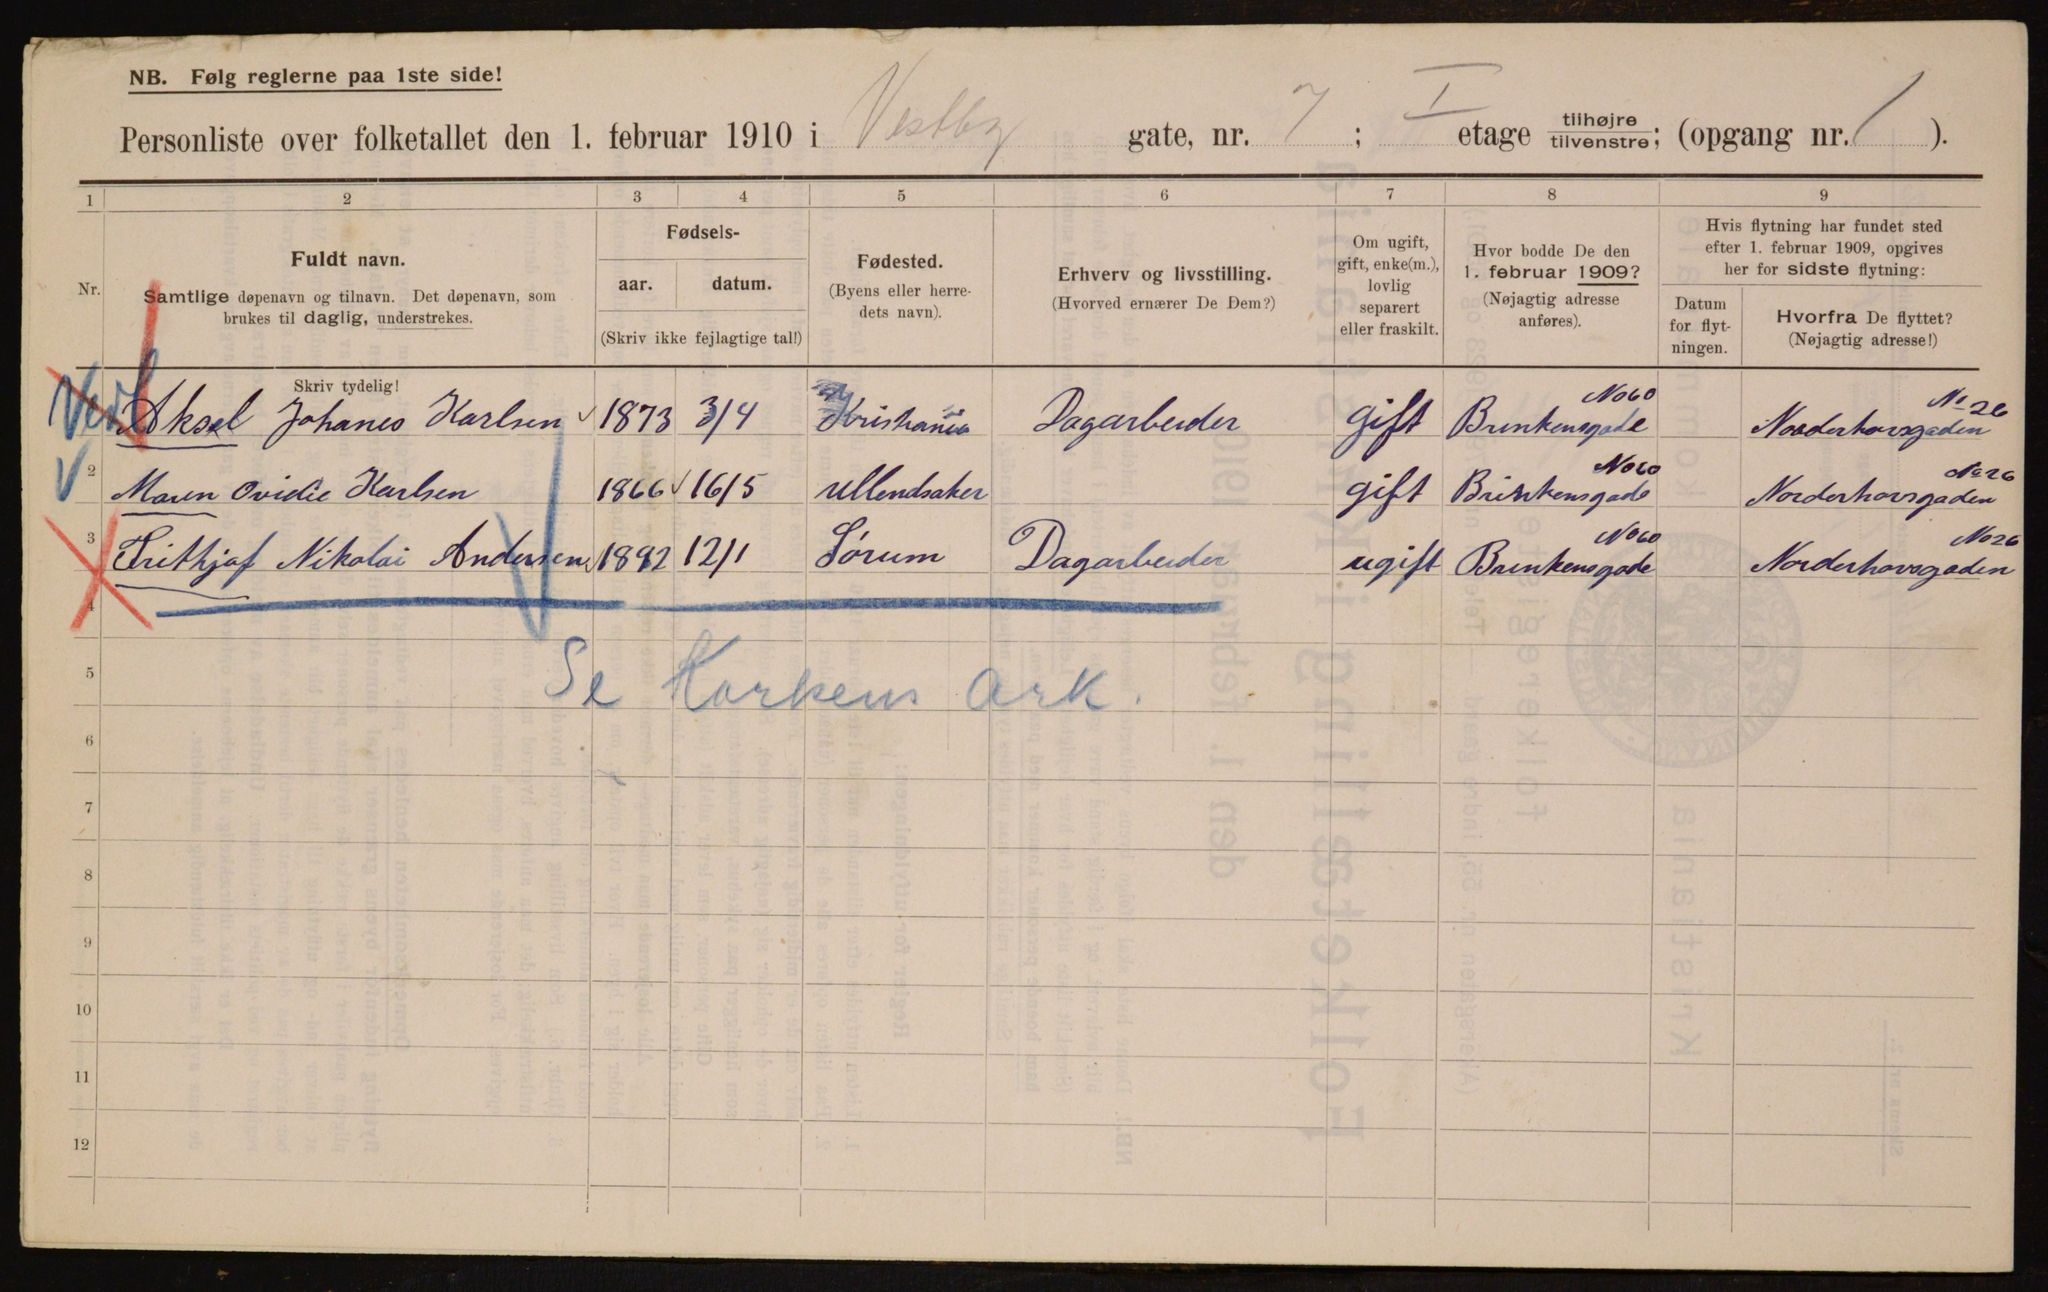 NB. Følg reglerne paa 1ste side!
Personliste over folketallet den 1. februar 1910 i Vestby gate, nr. 7; I etage tilhøjre/tilvenstre; (opgang nr. 1).
1 2 3 4 5 6 7 8 9
Nr.
Fuldt navn.
Samtlige døpenavn og tilnavn. Det døpenavn, som
brukes til daglig, understrekes.
Skriv tydelig!
Fødsels-
aar. datum.
(Skriv ikke fejlagtige tal!)
Fødested.
(Byens eller herre-
dets navn).
Erhverv og livsstilling.
(Hvorved ernærer De Dem?)
Om ugift,
gift, enke(m.),
lovlig
separert
eller fraskilt.
Hvor bodde De den
1. februar 1909?
(Nøjagtig adresse
anføres).
Hvis flytning har fundet sted
efter 1. februar 1909, opgives
her for sidste flytning:
Datum
for flyt-
ningen.
Hvorfra De flyttet?
(Nøjagtig adresse!)
Aksel Johanes Karlsen 1873 3/4 Kristiania Dagarbeider gift Brinkensgade No 60 Norderhovsgaden No 26
2 Maren Ovidie Karlsen 1866 16/5 Ullendsaker gift Brinkensgade No 60 Norderhovsgaden No 26
3 Frithjof Nikolai Andersen 1892 12/1 Sørum Dagarbeider ugift Brinkensgade No 60 Norderhovsgaden No 26
4
5 Se Karkens Ark.
6
7
8
9
10
11
12